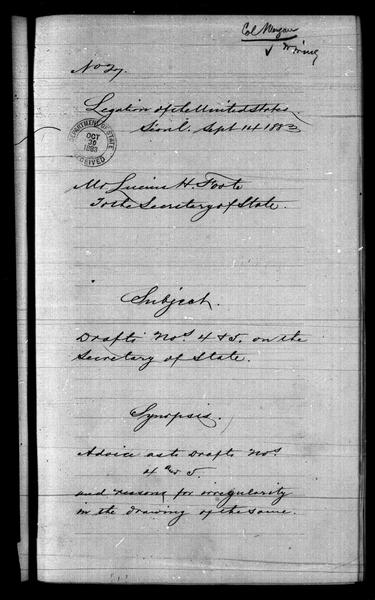 Col Morgan
No 27.
Legation of the United States.
Sëoul. Sept 14 1883
DEPARTMENT OF STATE
OCT
30
1883
RECEIVED
Mr Lucius H. Foote
To the Secretary of State.
Subject.
Drafts Nos 4 & 5. on the
Secretary of State.
Synopsis.
Advice as to Drafts Nos
4 and 5.
and reasons for irregularity
in the drawing of the same.